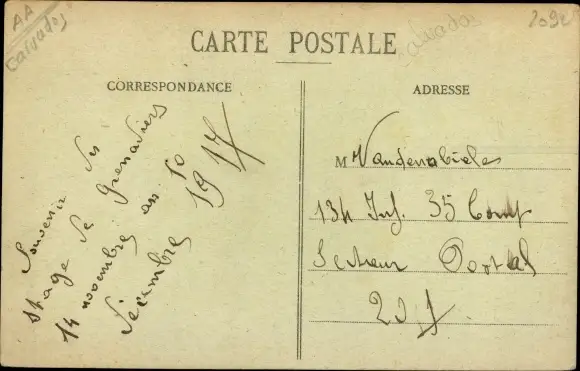 AA
Calvados
Calvados
2092
CARTE POSTALE
CORRESPONDANCE
Souvenir du
stage de Grenadiers
14 novembre au 10
décembre 1917
ADRESSE
M Vandenabiele
134 Inf. 35 Comp
Secteur Postal
201